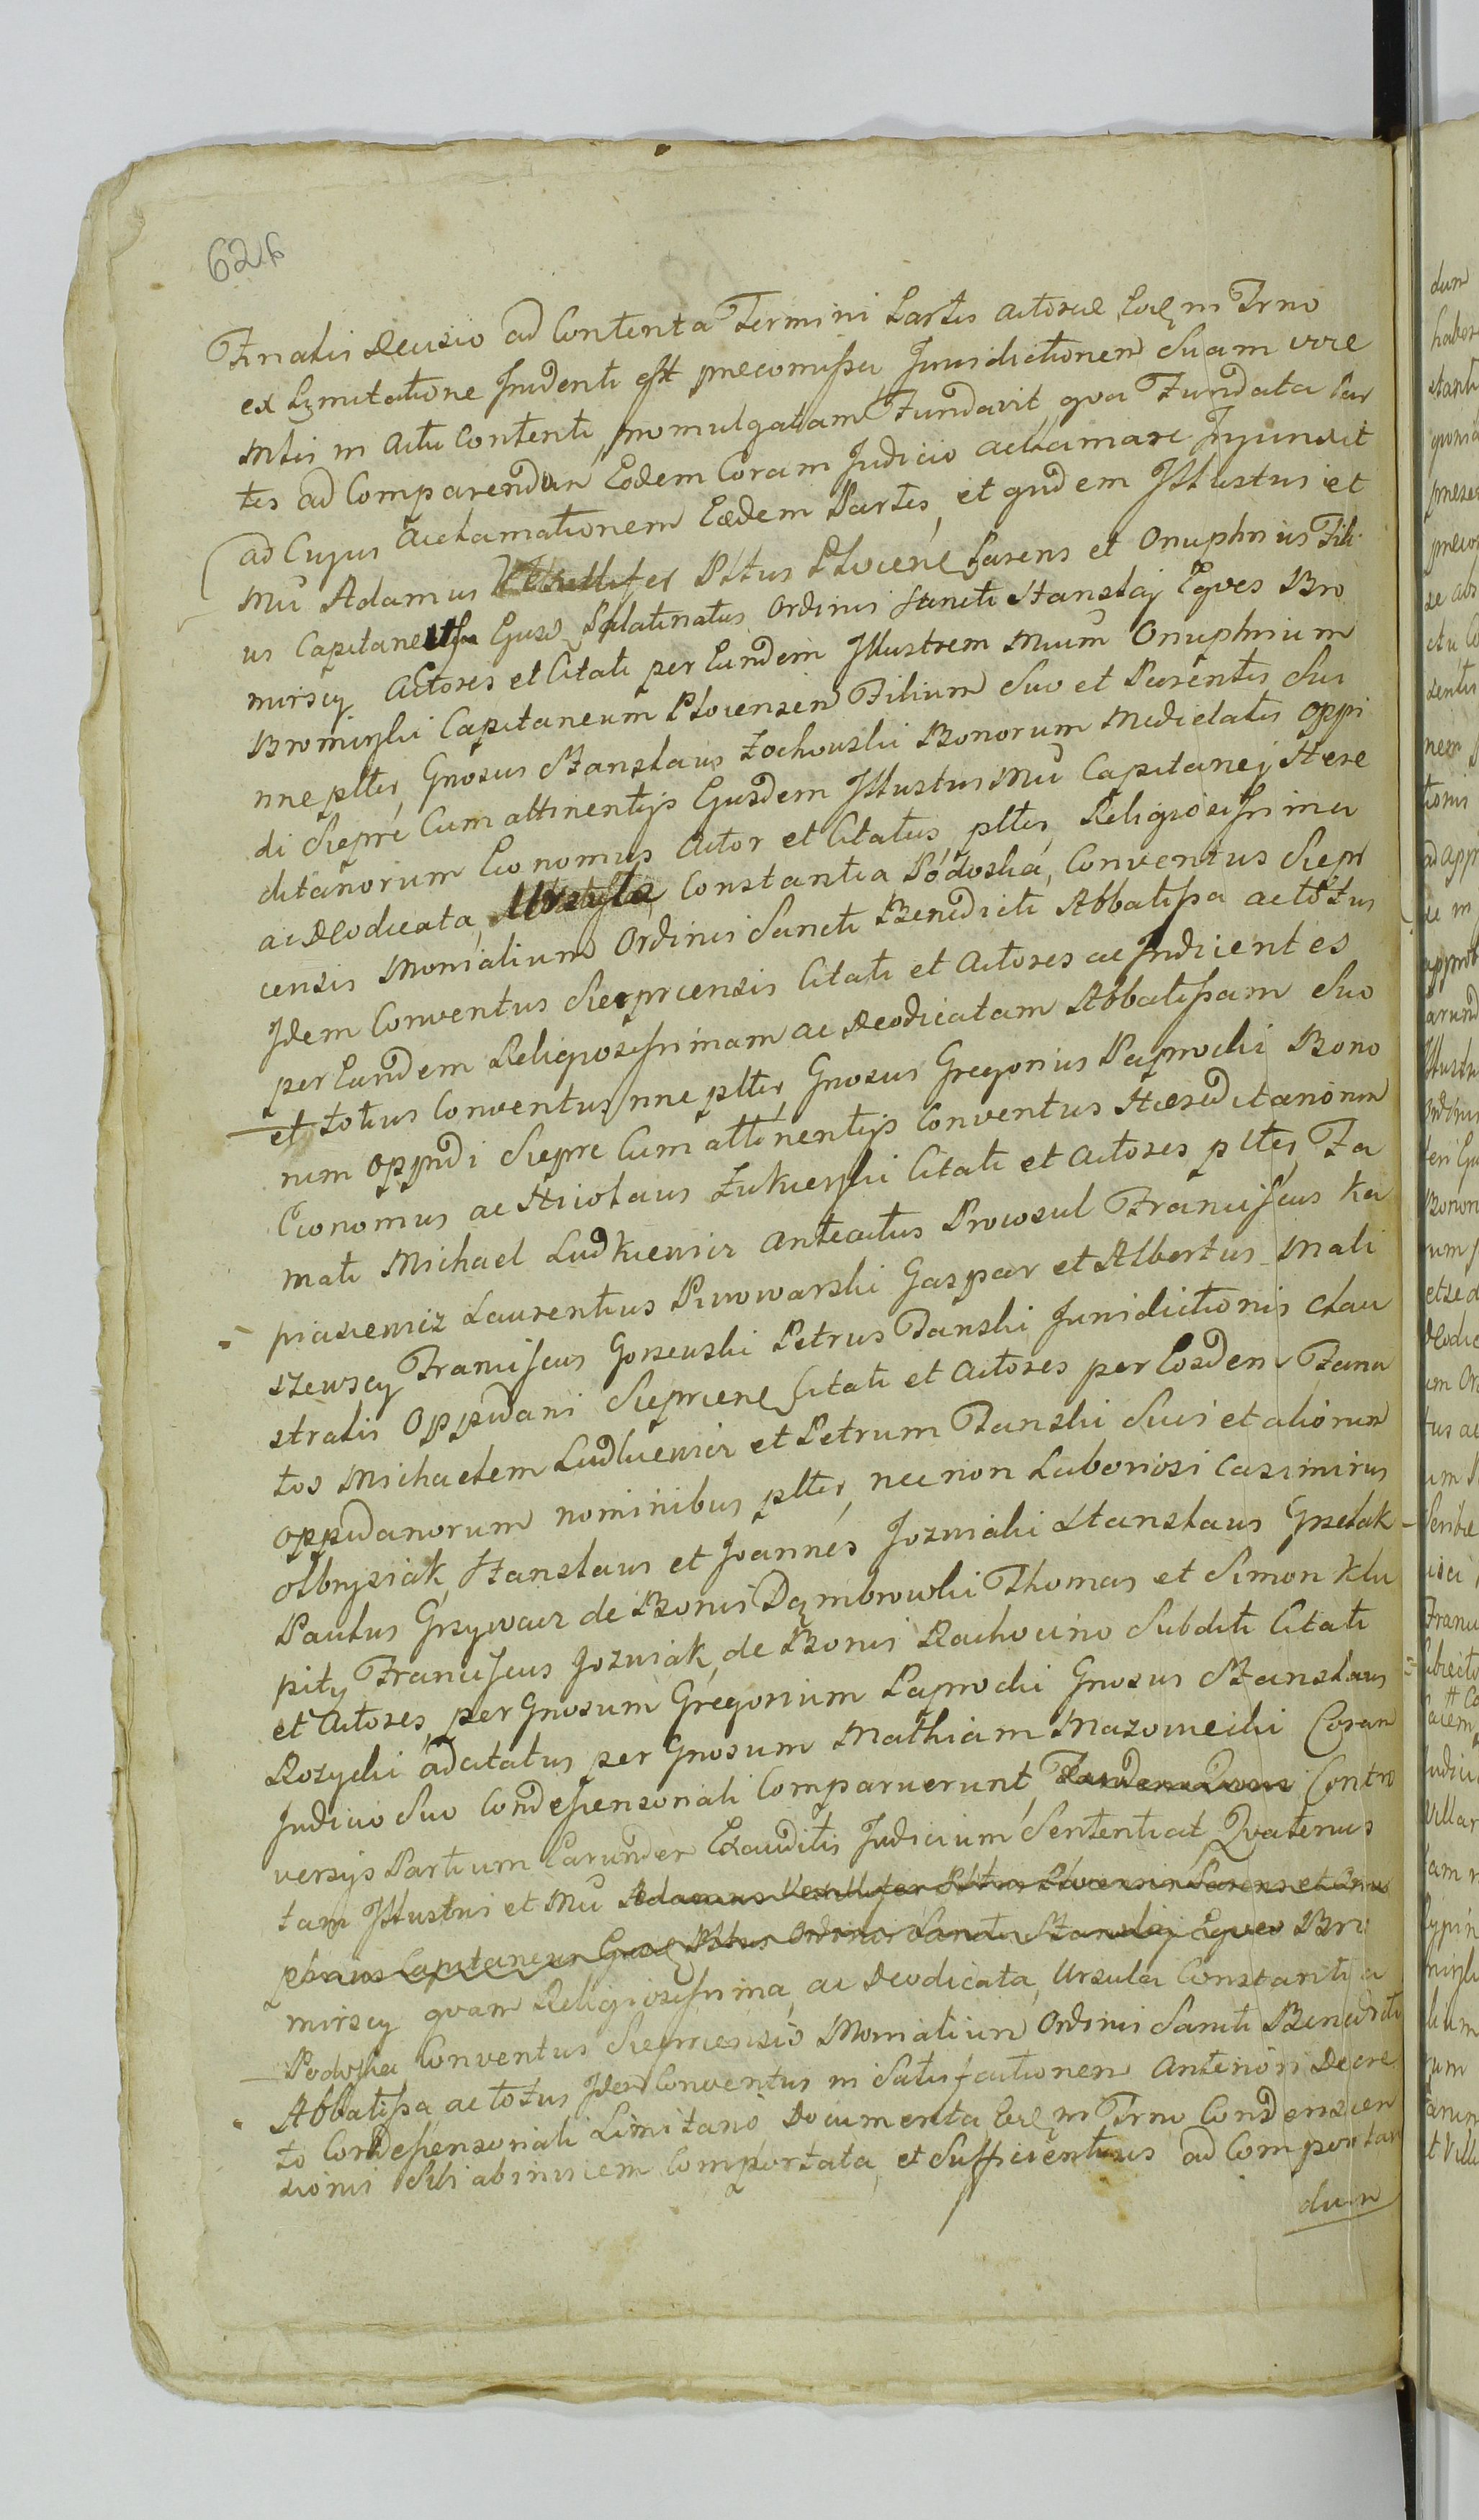 626
Finalis decisio ad Contenta Termini Partis actoreae, Eoq in Trno
ex Lymitatione Incidenti est praecomissa, Jurisdictionem Suam vore
Mtis in Actu Contenti promulgatam Fundavit, qva Fundata Par
tes ad Comparendum Eodem Coram Judicio acclamare Injunxit
ad Cujus acclamationem Eaedem Partes, et qvidem Illustris et
Mu Adamus Vexillifer Pltus Plocens Parens et Onuphrius Fili
us Capitaneus Ejusd Palatinatus Ordinis Sancti Stanslaj Eqves Bro
mirscy Actores et Citati per Eundem Illustrem Mnum Onuphrium
Bromirski Capitaneum Plocensem Filium Suo et Parentis Sui
nne pltes, Gnosus Stanslaus Zochowski Bonorum Medietatis oppi
di Sieprc Cum attinentijs Ejusdem Illustris Mu Capitanej Haere
ditariorum Economus Actor et Citatus, pltes, Religiosissima
ac Deodicata, Ursula Constantia Podoska, Conventus Siepr
censis Monialium Ordinis Sancti Benedicti Abbatissa ac totus
Idem Conventus Sierprcensis Citati et Actores ac Indicentes
per Eandem Religiosissimam ac Deodicatam Abbatissam Suo
et totius Conventus nne pltes, Gnosus Gregorius Paprocki Bono
rum oppidi Sieprc Cum attinentijs Conventus Haereditariorum
Economus ac Nicolaus Zukierski Citati et Actores pltes, Fa
mati Michael Ludkiewicz Anteactus Procosul Franciscus Ka
piasiewicz Laurentius Piwowarski Gaspar et Albertus Mali
szewscy Franciscus Gorzewski Petrus Danski Jurisdictionis Clau
stralis Oppidani Sieprcens Citati et Actores per Eosdem Fama
tos Michaelem Ludkiewicz et Petrum Danski Suis et aliorum
oppidanorum nominibus pltes, nec non Laboriosi Casimirus
Olbrysiak, Stanslaus et Joannes Jozwiaki Stanslaus Grzelak
Paulus Grzywacz de Bonis Dąmbrowki Thomas et Simon Klu
pity Franciscus Jozwiak, de Bonis Rachocino Subditi Citati
et Actores, per Gnosum Gregorium Paprocki Gnosus Stanslaus
Rozycki adcitatus per Gnosum Mathiam Mazowiecki Coram
Judicio Suo Condescensoriali Comparuerunt, Contro
versys Partium Earunder Exauditis Judicium Sententiat Qvatenus
tam Illustris et Mu Adamus Vexillifer Pltus Plocensis Parens et Onu
phrius Capitaneus Ejusd Pltus Ordinis Sancti Stanslaj Eqves Bro
mirscy qvam Religiosissima, ac Deodicata, Ursula Constantia
Podoska Conventus Sieprcensis Monialium Ordinis Sancti Benedicti
Abbatissa, ac totus Idem Conventus in Satisfactionem Anteriori Decre
to Condescensoriali Limitario Documenta, Eoq in Trno Condenscen
sionis Sibi abinvicem Comportata, et Sufficientius ad Comportan
dum